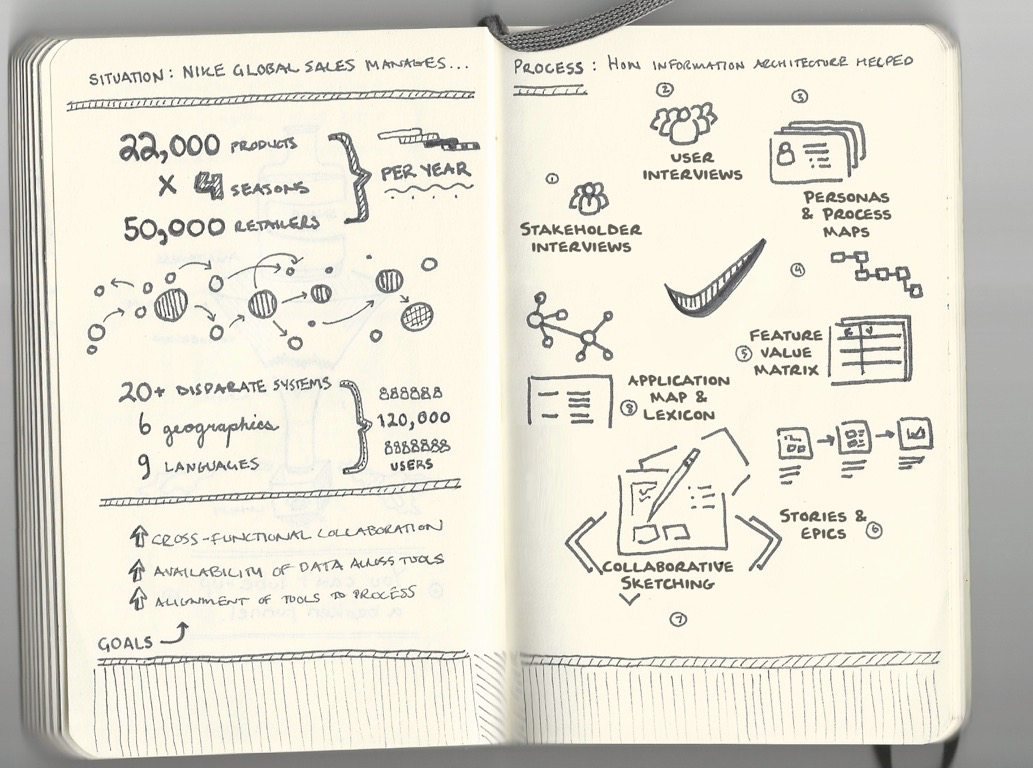 SITUATION: NIKE GLOBAL SALES MANAGES...
22,000 PRODUCTS
X 4 SEASONS
50,000 RETAILERS
PER YEAR
20+ DISPARATE SYSTEMS
6 geographics
9 LANGUAGES
120,000
USERS
CROSS-FUNCTIONAL COLLABORATION
AVAILABILITY OF DATA ACROSS TOOLS
ALIGNMENT OF TOOLS TO PROCESS
GOALS
PROCESS: HOW INFORMATION ARCHITECTURE HELPED
1
STAKEHOLDER
INTERVIEWS
2
USER
INTERVIEWS
3
PERSONAS
& PROCESS
MAPS
4
5
FEATURE
VALUE
MATRIX
6
STORIES &
EPICS
7
COLLABORATIVE
SKETCHING
8
APPLICATION
MAP &
LEXICON